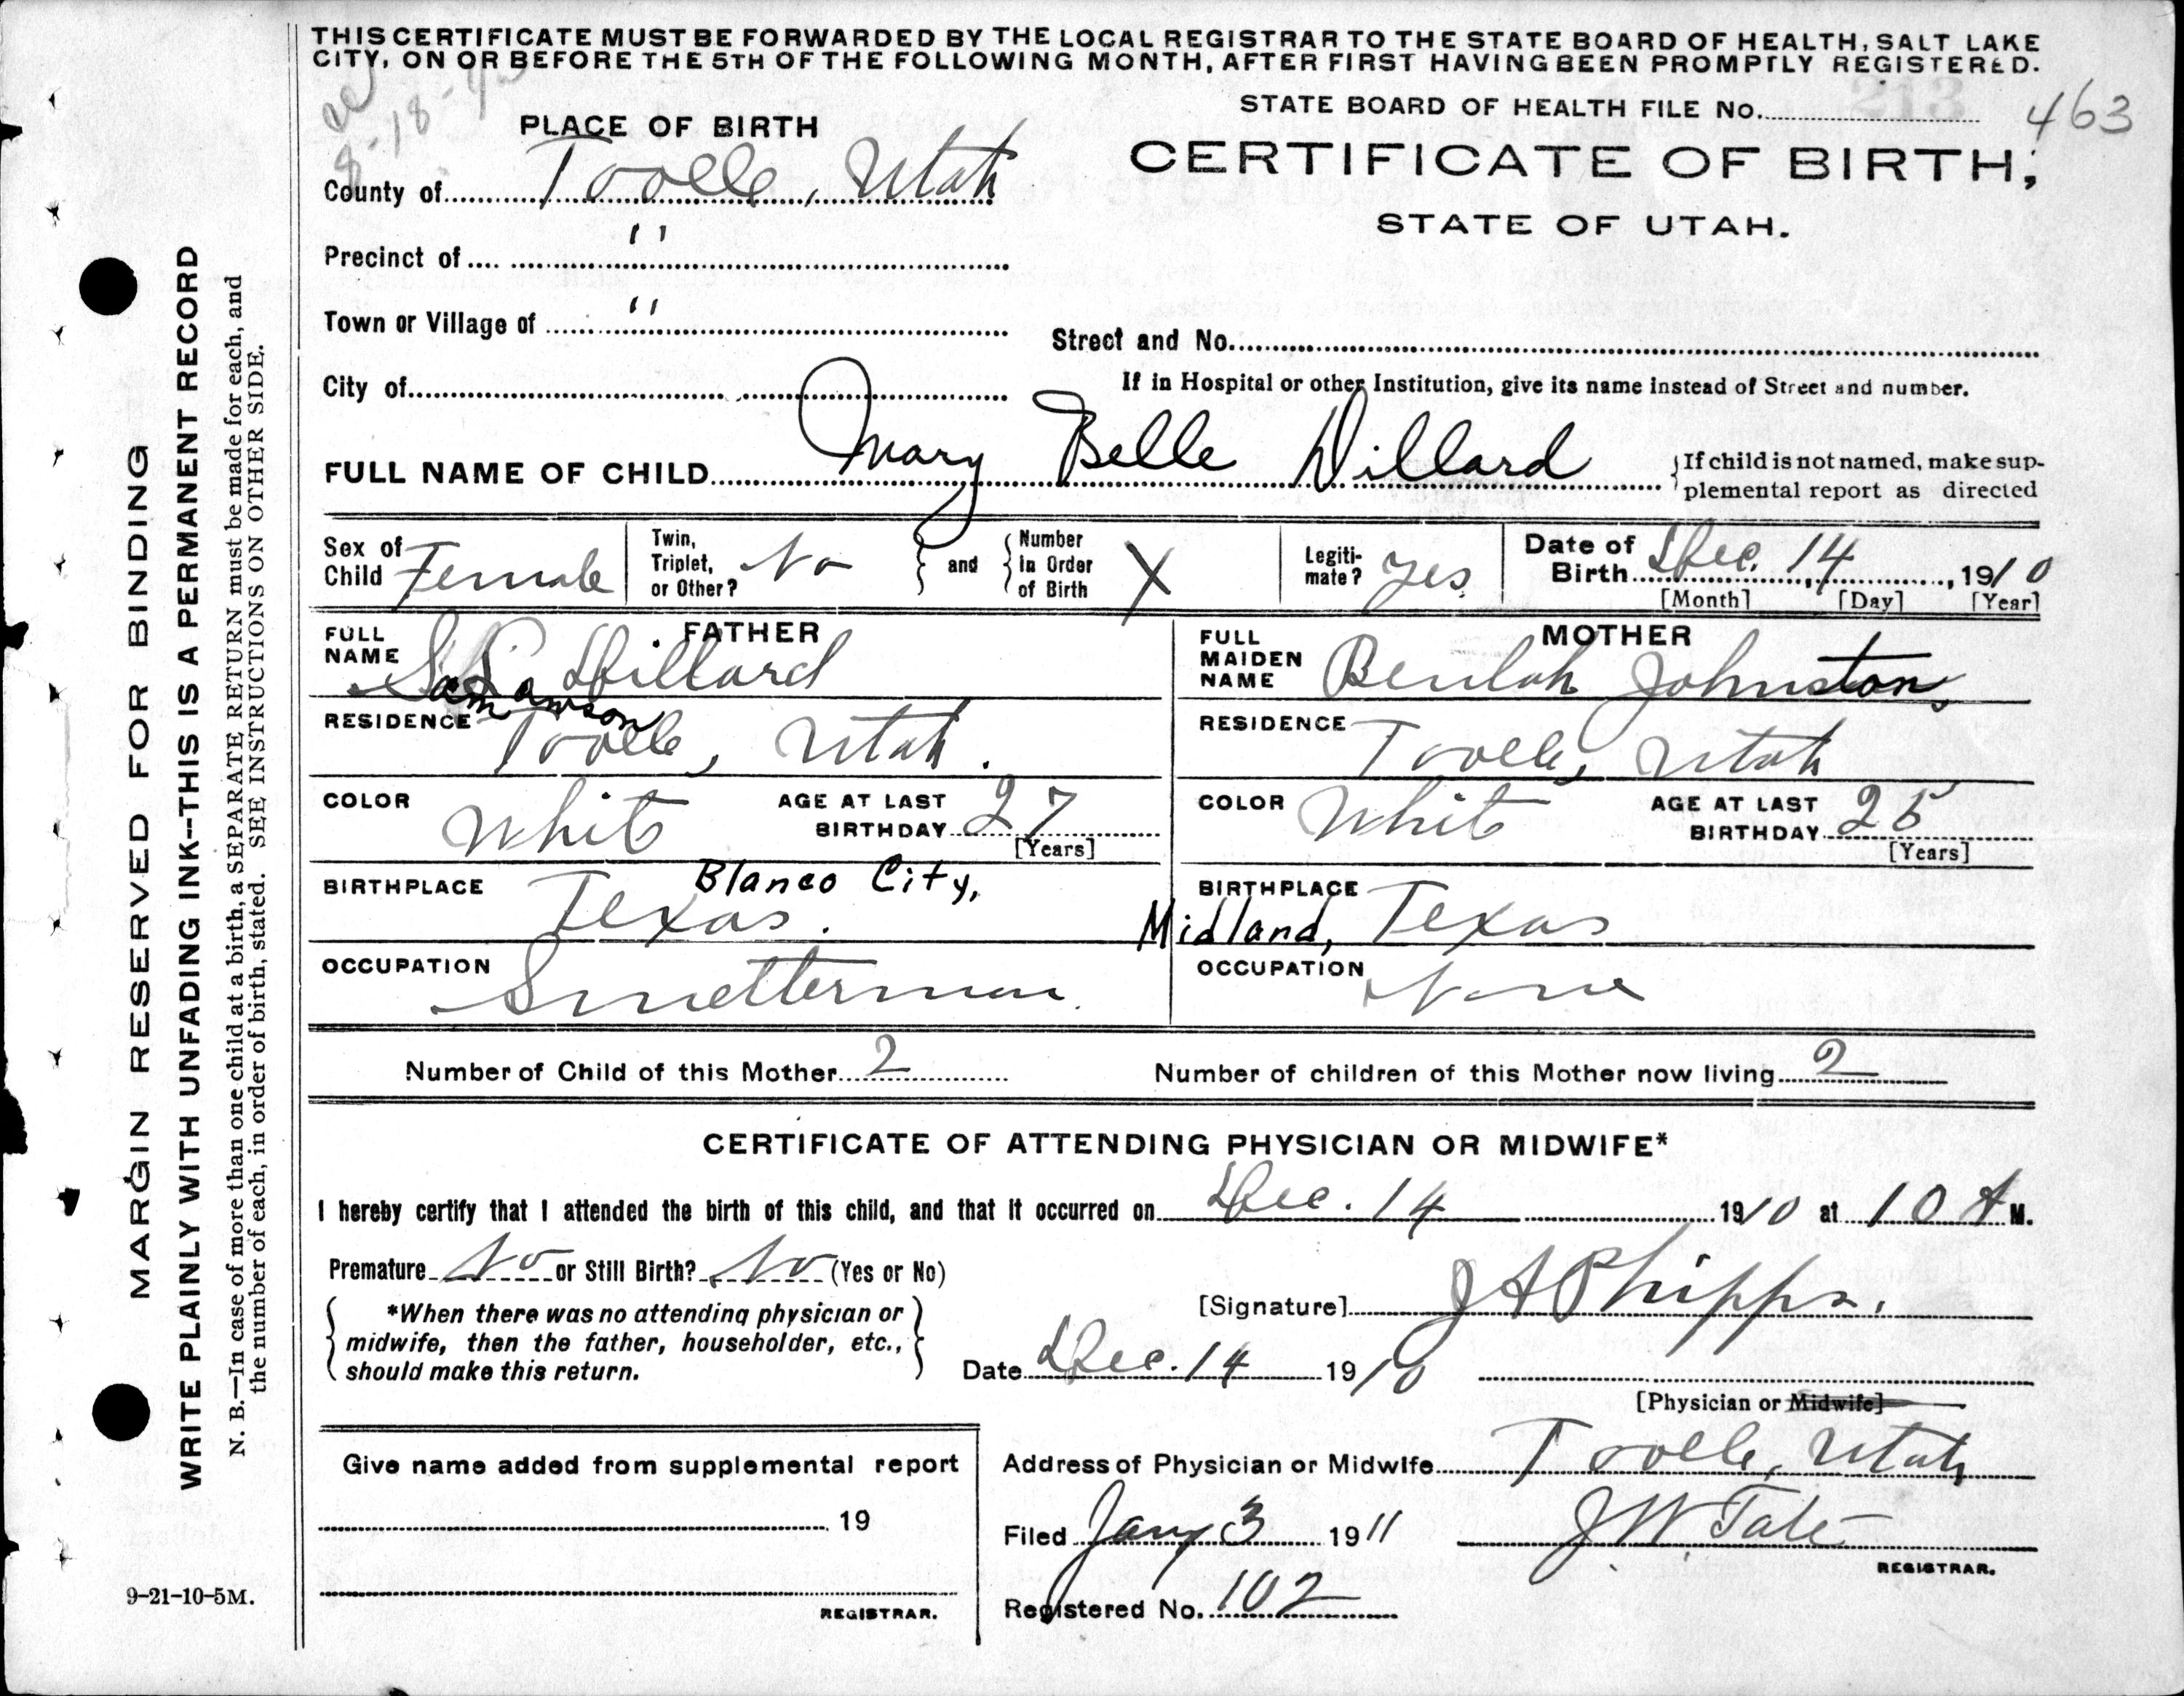 THIS CERTIFICATE MUST BE FORWARDED BY THE LOCAL REGISTRAR TO THE STATE BOARD OF HEALTH, SALT LAKE
CITY, ON OR BEFORE THE 5TH OF THE FOLLOWING MONTH, AFTER FIRST HAVING BEEN PROMPTLY REGISTERED.
8-18-4
STATE BOARD OF HEALTH FILE No. 213 463
PLACE OF BIRTH
CERTIFICATE OF BIRTH,
STATE OF UTAH.
County of Tooele, Utah
Precinct of "
Town or Village of "
Street and No.
City of
If in Hospital or other Institution, give its name instead of Street and number.
FULL NAME OF CHILD Mary Belle Dillard
If child is not named, make sup-
plemental report as directed
Sex of Child Female
Twin, Triplet, or Other? No
and Number in Order of Birth X
Legiti-mate? Yes
Date of Birth Dec. 14, 1910
[Month] [Day] [Year]
FATHER
FULL NAME S. L. Dillard
Sam Lawson
RESIDENCE Tooele, Utah.
COLOR White AGE AT LAST BIRTHDAY 27
[Years]
BIRTHPLACE Blanco City,
Texas.
OCCUPATION Smelterman.
MOTHER
FULL MAIDEN NAME Beulah Johnston
RESIDENCE Tooele, Utah
COLOR White AGE AT LAST BIRTHDAY 25
[Years]
BIRTHPLACE
Midland, Texas
OCCUPATION None
Number of Child of this Mother 2 Number of children of this Mother now living 2
CERTIFICATE OF ATTENDING PHYSICIAN OR MIDWIFE*
I hereby certify that I attended the birth of this child, and that it occurred on Dec. 14 1910 at 10 A M.
Premature No or Still Birth? No (Yes or No)
*When there was no attending physician or
midwife, then the father, householder, etc.,
should make this return.
[Signature] J A Phipps.
Date Dec. 14 1910
[Physician or Midwife]
Give name added from supplemental report
19
REGISTRAR.
Address of Physician or Midwife Tooele, Utah
Filed Jany 3 1911 J. W. Tate
REGISTRAR.
Registered No. 102
MARGIN RESERVED FOR BINDING
WRITE PLAINLY WITH UNFADING INK--THIS IS A PERMANENT RECORD
N. B.—In case of more than one child at a birth, a SEPARATE RETURN must be made for each, and
the number of each, in order of birth, stated. SEE INSTRUCTIONS ON OTHER SIDE.
9-21-10-5M.